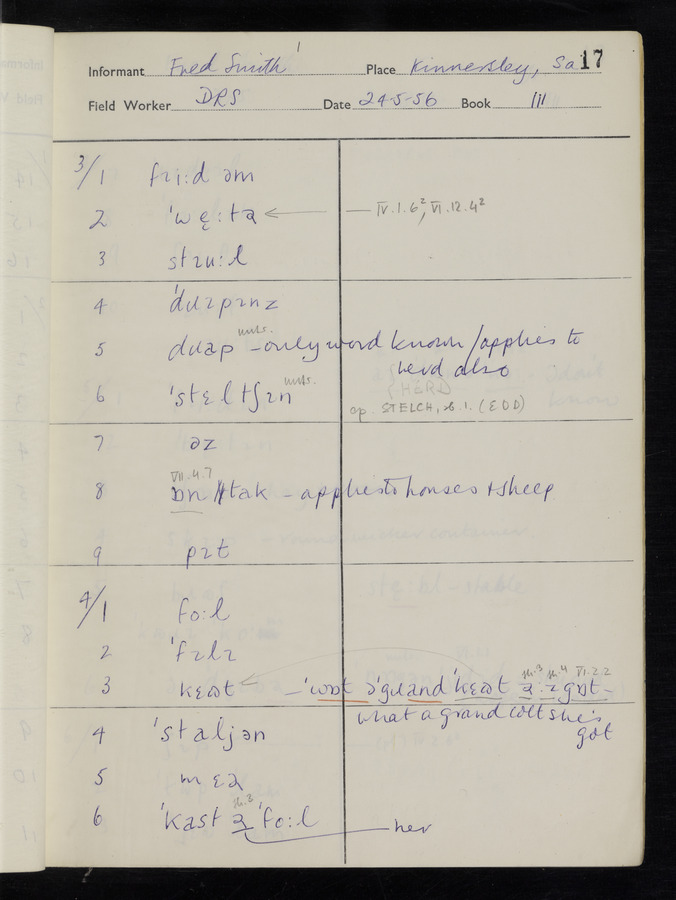 17
Informant Fred Smith Place Kinnersley, Sa
Field Worker DRS Date 24-5-56 Book III
3/1 fɹi:dəm
2 'wẹ:tə ← — IV.1.6², VI.12.4²
3 stɹu:l
4 'dɹapɪnz
5 dɹap – only word known / applies to
herd also
HERD
6 'stɛltʃɪn
cp. STELCH, sb.1. (EDD)
7 əz
VII.4.7
8 ɒn tak – applies to horses + sheep
9 pɪt
4/1 fo:l
2 'fɪlɪ
3 kɛət – 'wɒt ə'gɹand 'kɛət ɜ:z gɒt –
VI.2.2
what a grand colt she's
got
4 'staljən
5 mɛə
6 'kast ɜ 'fo:l – her